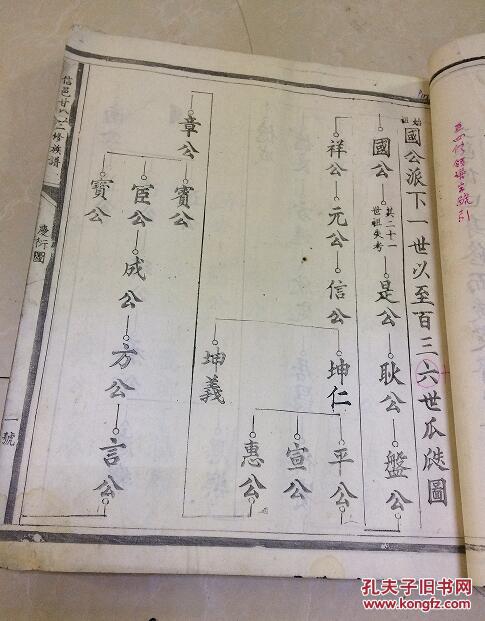 始祖國公派下一世以至百三六世瓜瓞圖
國公
其二十一世祖失考
是公
耿公
盤公
祥公
元公
信公
坤仁
平公
宣公
惠公
坤義
章公
賓公
宦公
成公
方公
言公
寳公
信邑廿八三修族譜
慶衍圖
一號
孔夫子旧书网
www.kongfz.com